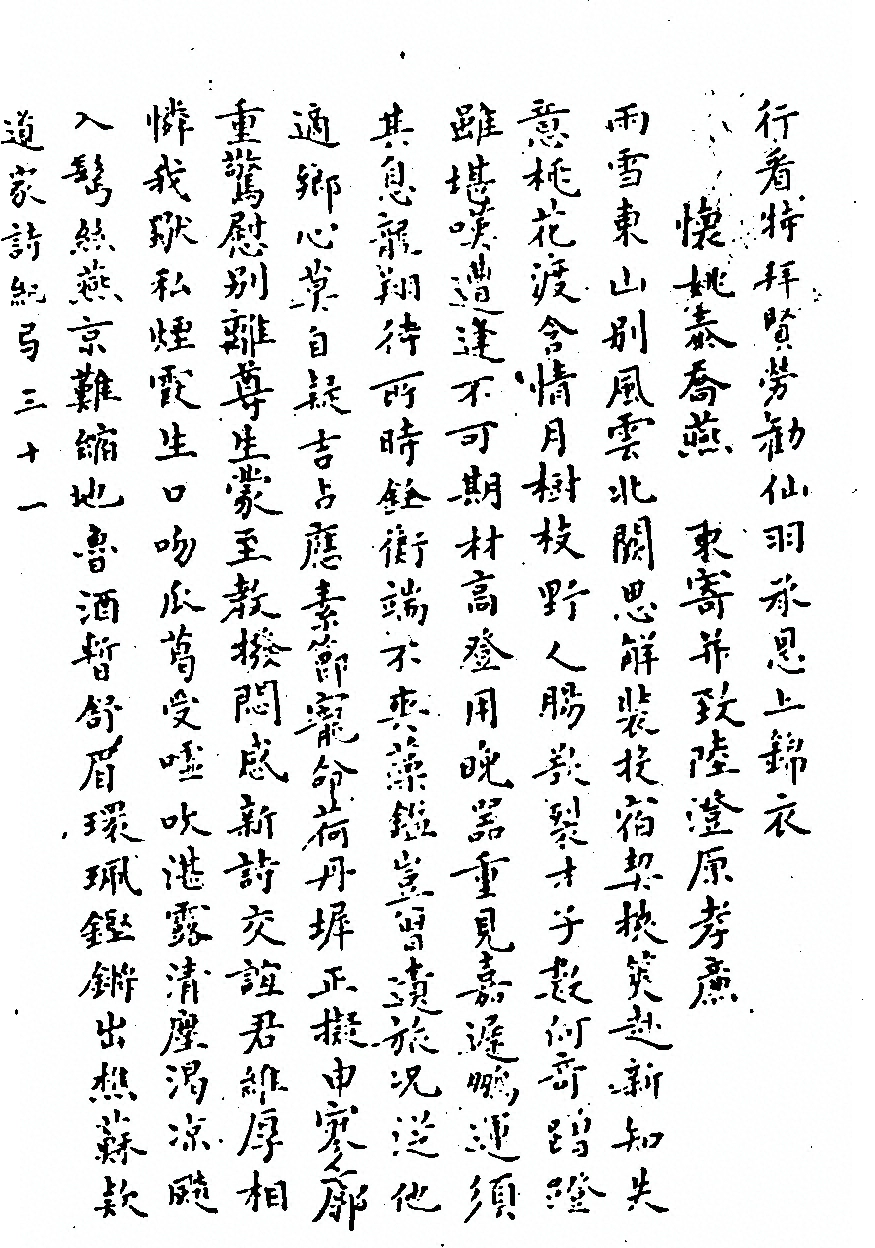 行看特拜賢勞勸仙羽承恩上錦衣
懷姚泰喬燕 東寄并致陸澄原孝廉
雨雪東山別風雲北闕思解裝投宿契挾筴赴新知失
意桃花渡含情月樹枝野人腸欲裂才子數何奇蹭蹬
雖堪嘆遭逢不可期材高登用晚器重見嘉遲鵬運須
其息龍翔待所時銓衡端不爽藻鑑豈曾遺旅况從他
適鄉心莫自疑吉占應素節寵命荷丹墀正擬申寥廓
重驚慰別離尊生蒙至教撥悶感新詩交誼君維厚相
憐我猷私煙霞生口吻瓜葛受噓吹湛露清塵渴凉颸
入鬢絲燕京難縮地魯酒暫舒眉環珮鏗鏘出樵蘇欸
道家詩紀弓三十一